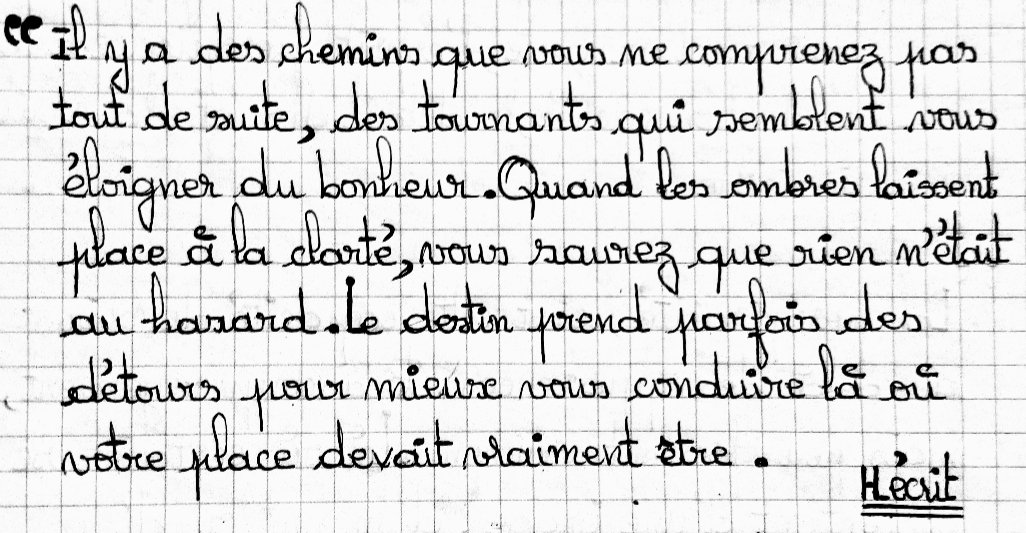 “Il y a des chemins que vous ne comprenez pas
tout de suite, des tournants qui semblent vous
éloigner du bonheur. Quand les ombres laissent
place à la clarté, vous saurez que rien n'était
au hasard. Le destin prend parfois des
détours pour mieux vous conduire là où
votre place devait vraiment être.
H.écrit